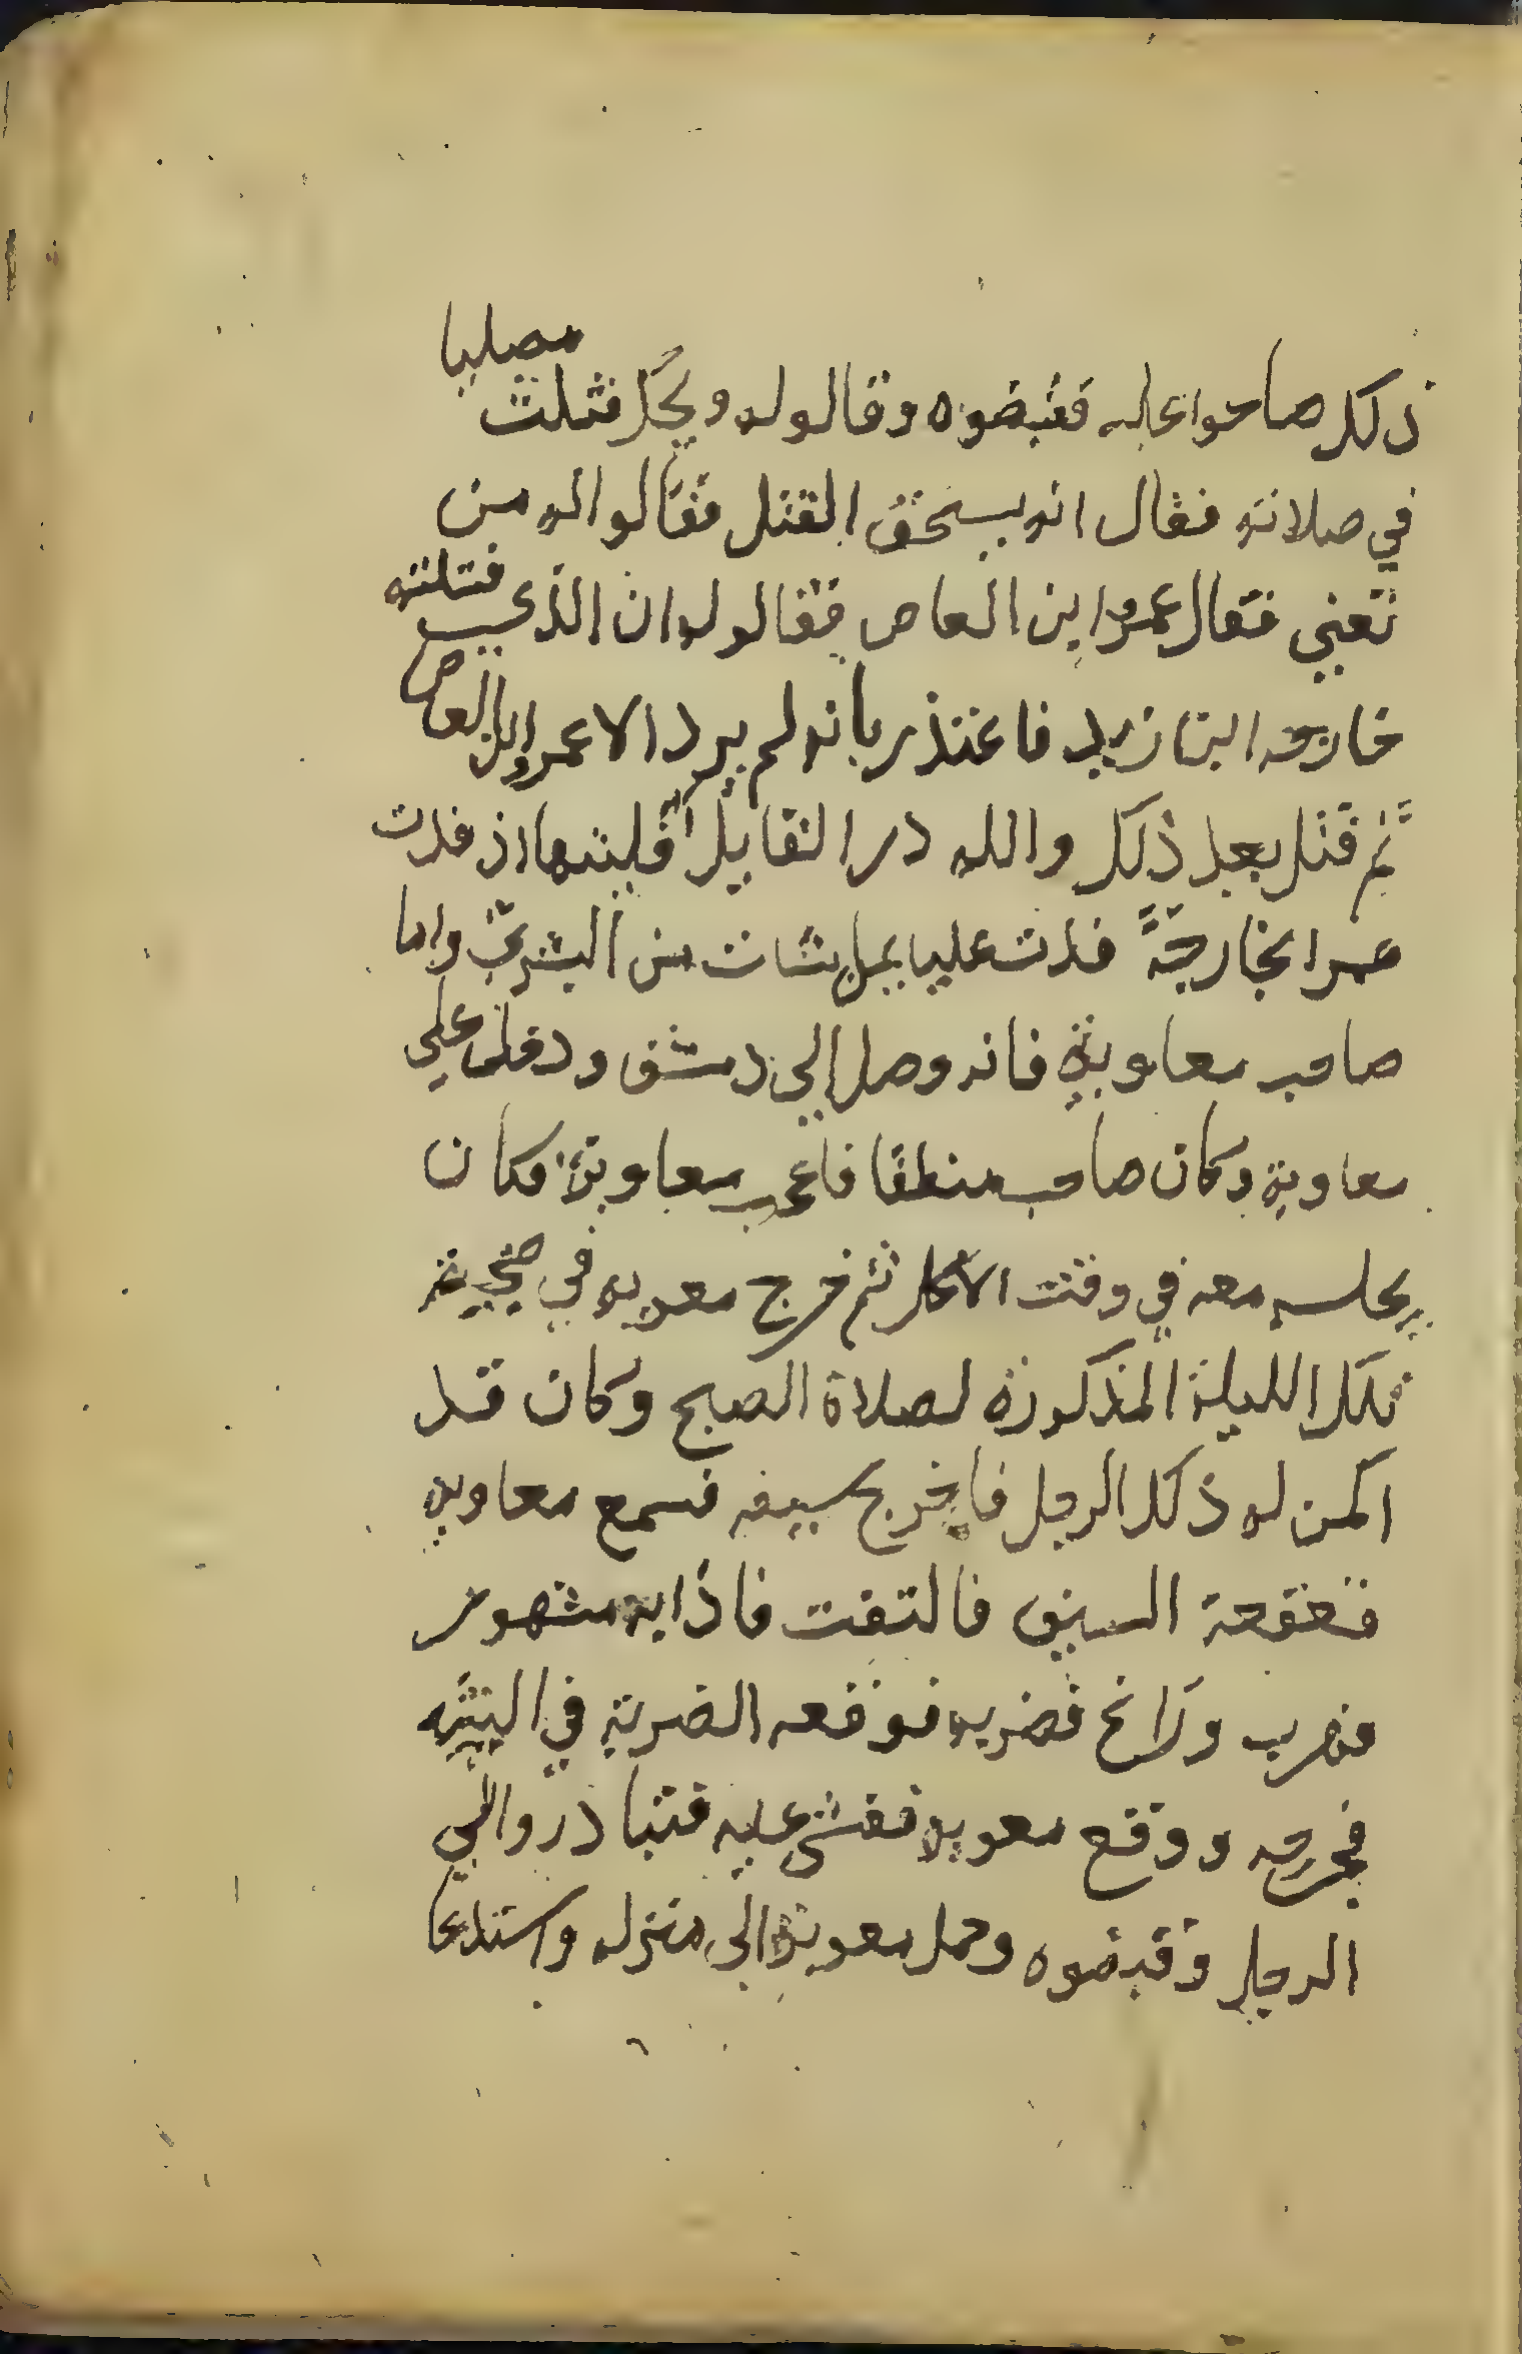 ذلك صاحوا عليه فقبضوه وقالوله ويحك قتلت مصليا
في صلاته فقال انه يستحق القتل فقالو اله من
تعني فقال عمروا ابن العاص فقالوله ان الذي قتلته
خارجه ابن زيد فاعتذر بانه لم يرد الا عمروا ابن العاص
ثم قتل بعد ذلك والله در القايل افليتها اذ فدت
عمرا بخارجة فدت عليا بمن شات من البشر واما
صاحب معاوية فانه وصل الي دمشق ودخل علي
معاوية وكان صاحب منطقا فاعجب معاوية فكان
يجلسه معه في وقت الاكل ثم خرج معويه في صبحية
تلك الليلة المذكورة لصلاة الصبح وكان قد
اكمن له ذلك الرجل فاخرج سيفه فسمع معاويه
قعقعة السيف فالتفت فاذا به مشهور
فهرب وراغ فضربه فوقعه الضربة في اليته
فجرحه ووقع معويه فغشي عليه فتبادروا الي
الرجل وقبضوه وحمل معوية الى منزله واستدعا